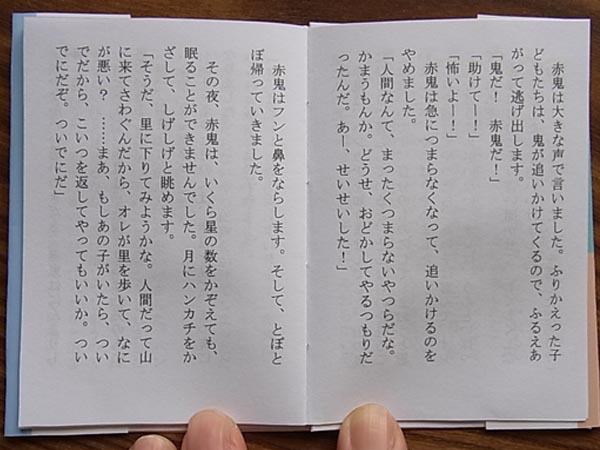 赤鬼は大きな声で言いました。ふりかえった子
どもたちは、鬼が追いかけてくるので、ふるえあ
がって逃げ出します。
「鬼だ！　赤鬼だ！」
「助けてー！」
「怖いよー！」
赤鬼は急につまらなくなって、追いかけるのを
やめました。
「人間なんて、まったくつまらないやつらだな。
かまうもんか。どうせ、おどかしてやるつもりだ
ったんだ。あー、せいせいした！」
赤鬼はフンと鼻をならします。そして、とぼと
ぼ帰っていきました。
その夜、赤鬼は、いくら星の数をかぞえても、
眠ることができませんでした。月にハンカチをか
ざして、しげしげと眺めます。
「そうだ、里に下りてみようかな。人間だって山
に来てさわぐんだから、オレが里を歩いて、なに
が悪い？　……まあ、もしあの子がいたら、つい
でだから、こいつを返してやってもいいか。つい
でにだぞ。ついでにだ」